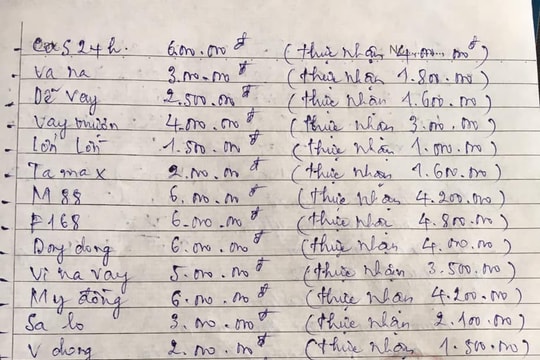 Cas 24h. 6.000.000đ (thực nhận 4.000.000đ)
Va na 3.000.000đ (thực nhận 1.800.000)
Dễ Vay 2.500.000đ (thực nhận 1.600.000)
Vay mượn 4.000.000đ (thực nhận 3.000.000)
Lớn Lớn 1.500.000đ (thực nhận 1.000.000)
Tamax 2.000.000đ (thực nhận 1.600.000)
M88 6.000.000đ (thực nhận 4.200.000)
F168 6.000.000đ (thực nhận 4.800.000)
Dong dong 6.000.000đ (thực nhận 4.000.000)
Vi na vay 5.000.000đ (thực nhận 3.500.000)
My đồng 6.000.000đ (thực nhận 4.200.000)
Sa lo 3.000.000đ (thực nhận 2.100.000)
V dong 2.000.000đ (thực nhận 1.500.000)